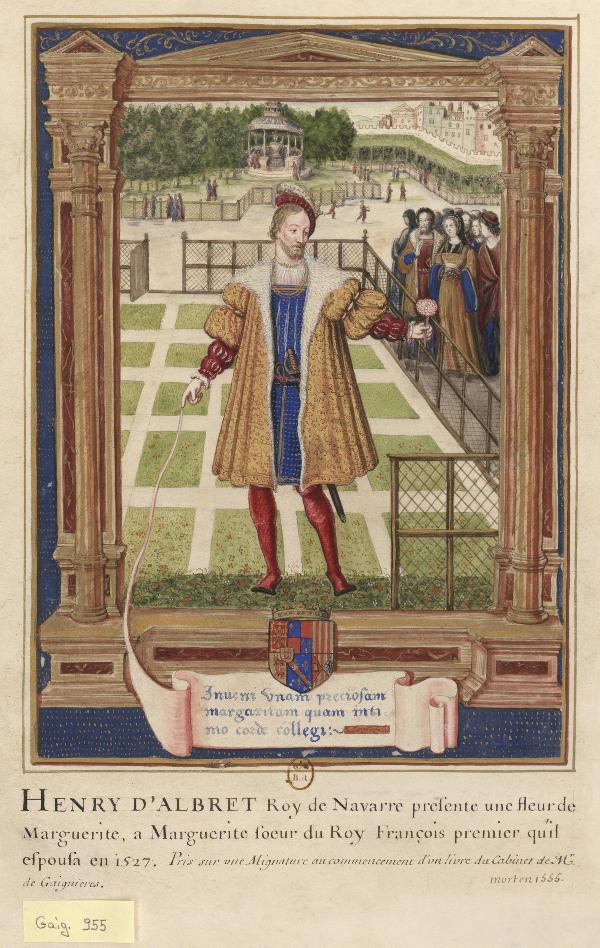 Inveni Vnam preciosam
margaritam quam inti
mo corde collegi:~
B.R
HENRY D'ALBRET Roy de Navarre preſente une fleur de
Marguerite, a Marguerite ſoeur du Roy François premier qu'il
eſpouſa en 1527. Pris sur une Mignature au commencement d'un livre du Cabinet de Mr.
de Gaignieres. mort en 1555.
Gaig. 955